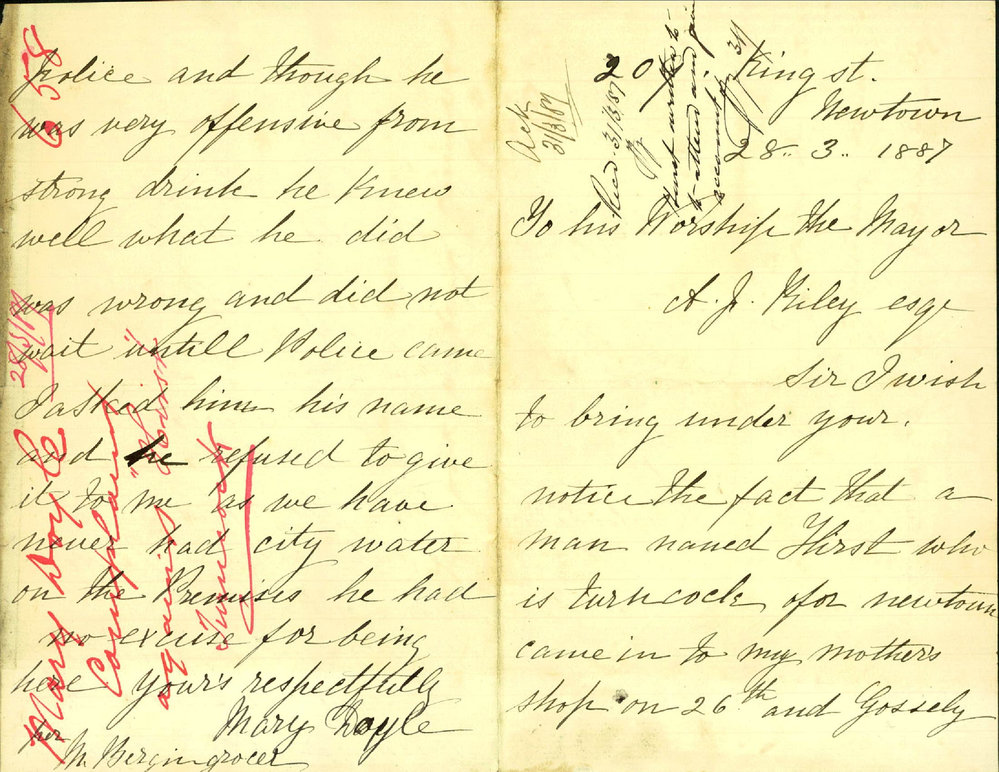 20 King st.
Newtown
28.. 3.. 1887
To his Worship the Mayor
A. J. Riley esqe
Sir I wish
to bring under your.
notice the fact that a
man named Hirst who
is turncock of or newtown
came in to my mother's
shop on 26th and Gossely
Ack
31/3/87
Recd 31/3/87
Hirst written to
to attend and
police and though he
was very offensive from
strong drink he knew
well what he did
was wrong and did not
wait untill Police came
I asked him his name
and he refused to give
it to me as we have
never had city water
on the Premises he had
no excuse for being
here yours respectfully
Mary Doyle
per
M. Bergin grocer
Mary Doyle
Complaint
against "Hirst"
Turncock
28/3/87